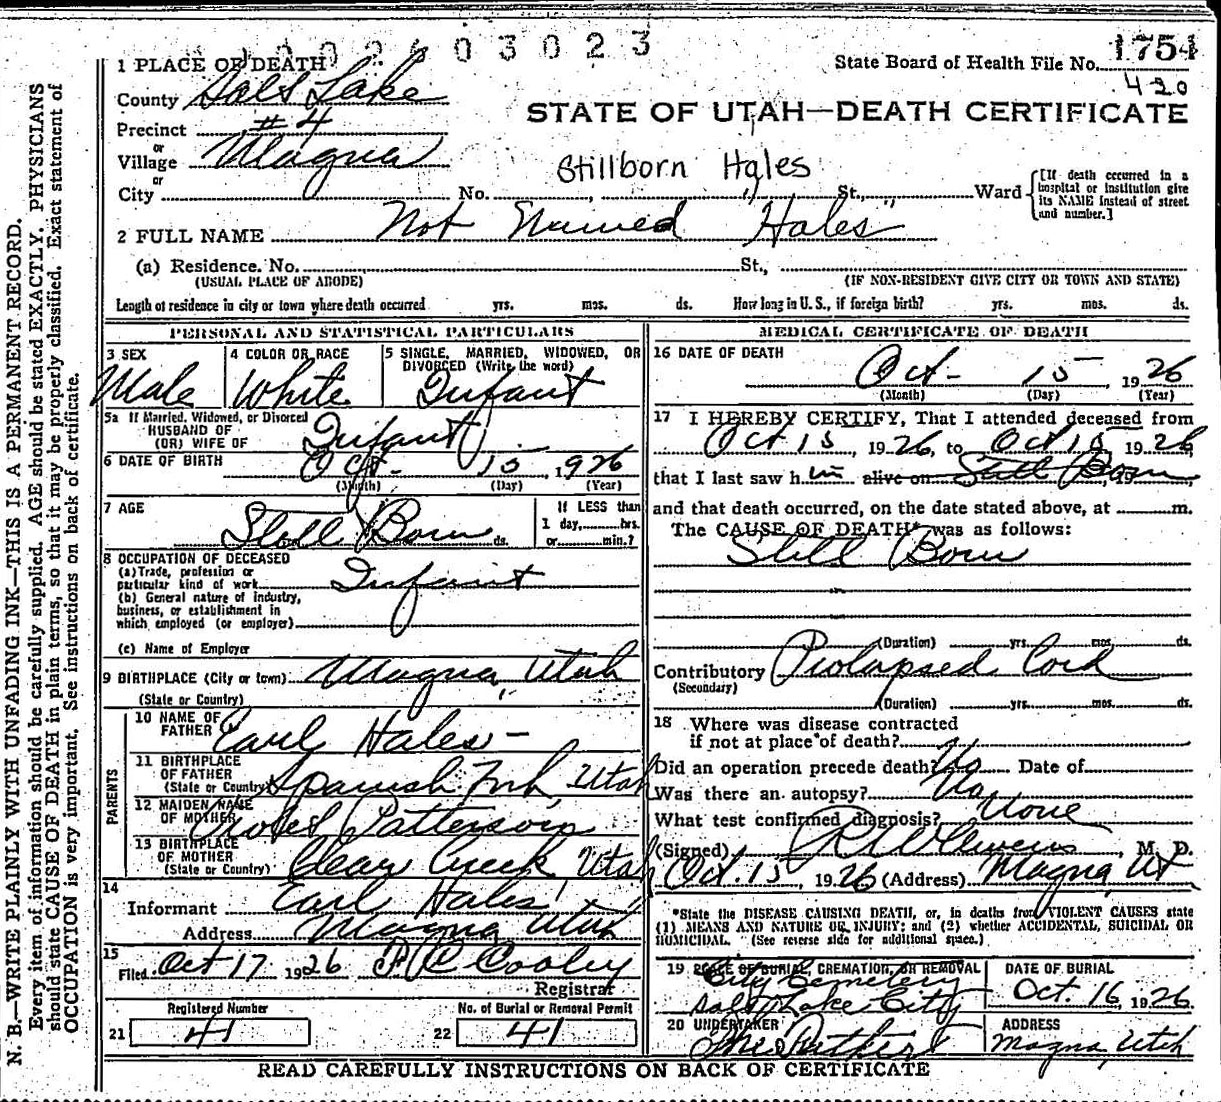 1002603023
1 PLACE OF DEATH
State Board of Health File No. 1754
420
County Salt Lake
STATE OF UTAH—DEATH CERTIFICATE
Precinct #4
or
Village Magna
Stillborn Hales
or
City No. , St., Ward
[If death occurred in a hospital or institution give its NAME instead of street and number.]
2 FULL NAME Not Named Hales
(a) Residence. No. St.,
(USUAL PLACE OF ABODE) (IF NON-RESIDENT GIVE CITY OR TOWN AND STATE)
Length of residence in city or town where death occurred yrs. mos. ds. How long in U. S., if foreign birth? yrs. mos. ds.
PERSONAL AND STATISTICAL PARTICULARS
3 SEX 4 COLOR OR RACE 5 SINGLE, MARRIED, WIDOWED, OR
DIVORCED (Write the word)
Male White Infant
5a If Married, Widowed, or Divorced
HUSBAND OF
(OR) WIFE OF Infant
6 DATE OF BIRTH Oct- 15, 1926
(Month) (Day) (Year)
7 AGE If LESS than
Still Born ds. 1 day,......hrs.
or......min.?
8 OCCUPATION OF DECEASED
(a) Trade, profession or
particular kind of work Infant
(b) General nature of industry,
business, or establishment in
which employed (or employer)
(c) Name of Employer
9 BIRTHPLACE (City or town) Magna, Utah
(State or Country)
PARENTS
10 NAME OF
FATHER Earl Hales-
11 BIRTHPLACE
OF FATHER
(State or Country) Spanish Fork, Utah
12 MAIDEN NAME
OF MOTHER Patterson
13 BIRTHPLACE
OF MOTHER
(State or Country) Clear Creek Utah
14
Informant Earl Hales
Address Magna Utah
15
Filed Oct 17 1926 P C Cooley
Registrar
Registered Number No. of Burial or Removal Permit
21 41 22 41
MEDICAL CERTIFICATE OF DEATH
16 DATE OF DEATH
Oct- 15, 1926
(Month) (Day) (Year)
17 I HEREBY CERTIFY, That I attended deceased from
Oct 15 1926, to Oct 15 1926,
that I last saw him alive on Still Born, 19
and that death occurred, on the date stated above, at ......m.
The CAUSE OF DEATH* was as follows:
Still Born
(Duration) yrs. mos. ds.
Contributory Prolapsed Cord
(Secondary)
(Duration) yrs. mos. ds.
18 Where was disease contracted
if not at place of death?
Did an operation precede death? No Date of
Was there an autopsy? No
What test confirmed diagnosis? None
(Signed) , M. D.
Oct. 15, 1926 (Address) Magna, Ut
*State the DISEASE CAUSING DEATH, or, in deaths from VIOLENT CAUSES state
(1) MEANS AND NATURE OF INJURY; and (2) whether ACCIDENTAL, SUICIDAL OR
HOMICIDAL. (See reverse side for additional space.)
19 PLACE OF BURIAL, CREMATION, OR REMOVAL DATE OF BURIAL
City Cemetery
Salt Lake City Oct. 16, 1926
20 UNDERTAKER ADDRESS
Magna, Utah
READ CAREFULLY INSTRUCTIONS ON BACK OF CERTIFICATE
N. B.—WRITE PLAINLY WITH UNFADING INK—THIS IS A PERMANENT RECORD.
Every item of information should be carefully supplied. AGE should be stated EXACTLY. PHYSICIANS
should state CAUSE OF DEATH in plain terms, so that it may be properly classified. Exact statement of
OCCUPATION is very important. See instructions on back of certificate.